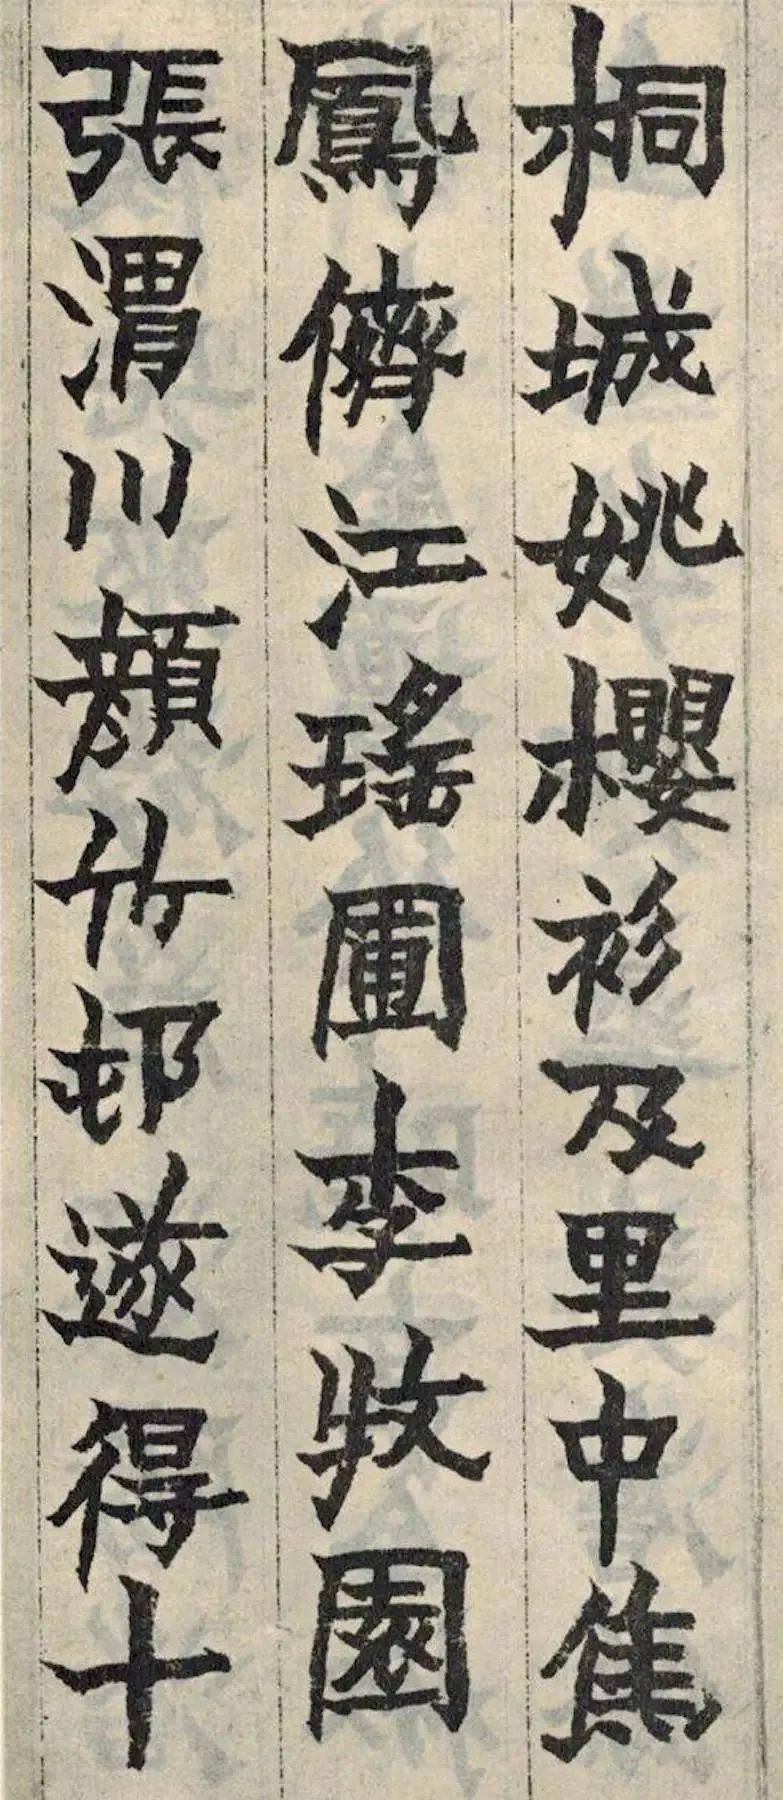 桐城姚櫻衫及里中焦
鳳儕江瑤圃李牧園
張渭川顔竹邨遂得十